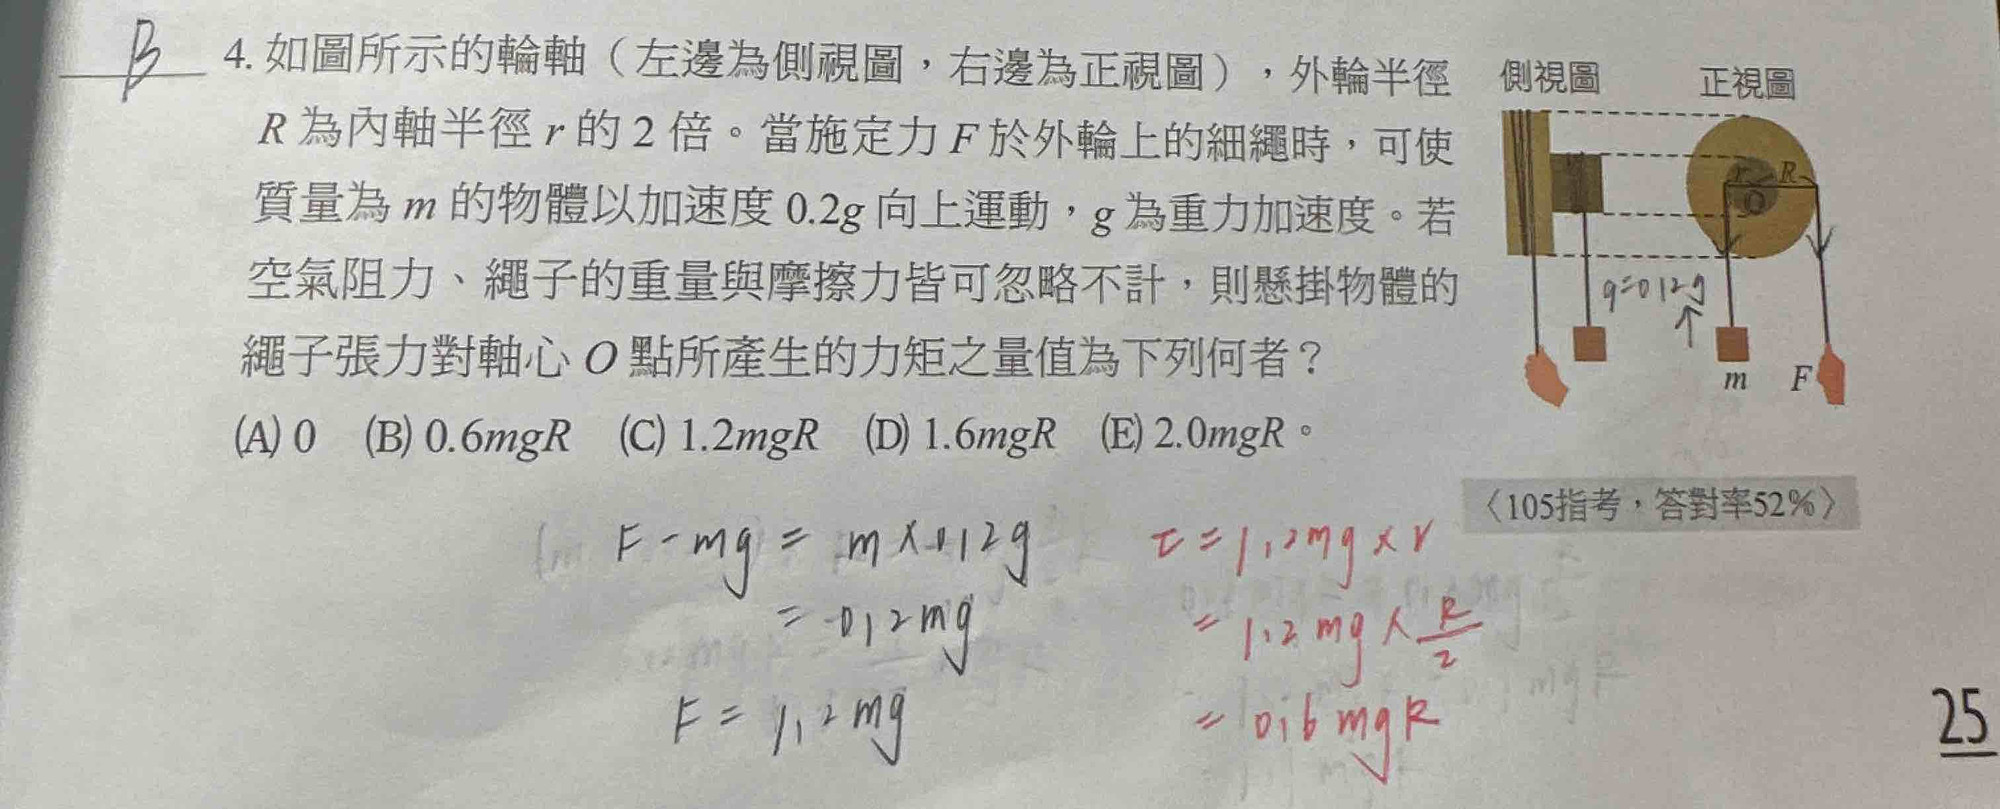 B
4. 如圖所示的輪軸（左邊為側視圖，右邊為正視圖），外輪半徑
R 為內軸半徑 r 的 2 倍。當施定力 F 於外輪上的細繩時，可使
質量為 m 的物體以加速度 0.2g 向上運動，g 為重力加速度。若
空氣阻力、繩子的重量與摩擦力皆可忽略不計，則懸掛物體的
繩子張力對軸心 O 點所產生的力矩之量值為下列何者？
(A) 0 (B) 0.6mgR (C) 1.2mgR (D) 1.6mgR (E) 2.0mgR。
側視圖 正視圖
r R
O
a=0.2g
↑
m F
〈105指考，答對率52%〉
F - mg = m × 0.2g
= 0.2mg
F = 1.2mg
τ = 1.2mg × r
= 1.2mg × R/2
= 0.6mgR
25